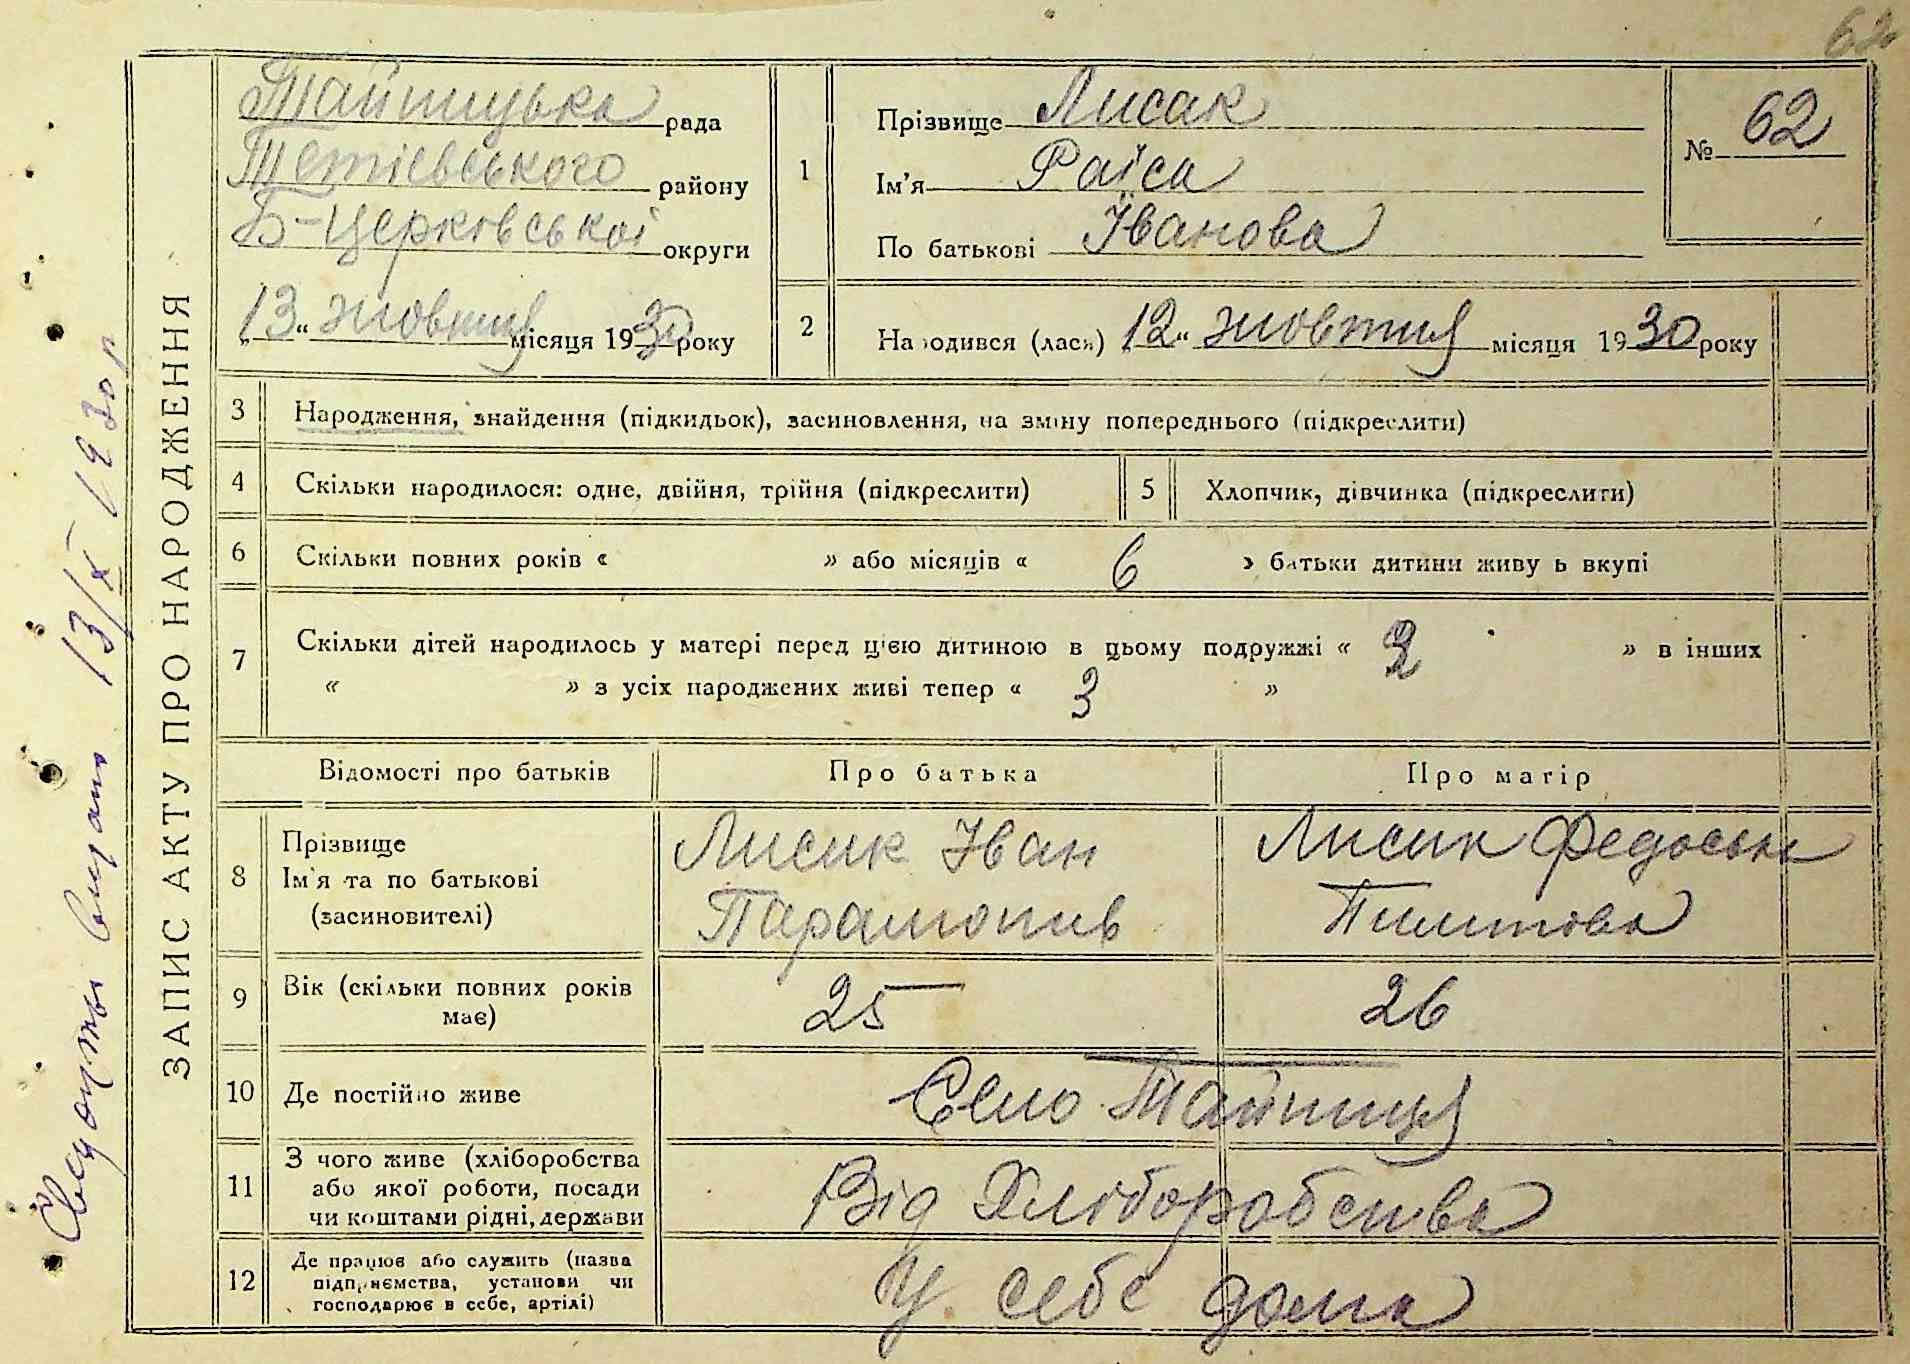 62
Тайницька рада
Тетіевського району
Б-Церковської округи
„13“ жовтня місяця 1930 року
1
Прізвище Лисак
Ім'я Раїса
По батькові Іванова
№ 62
2
Народився (лася) „12“ жовтня місяця 1930 року
ЗАПИС АКТУ ПРО НАРОДЖЕННЯ
видано 13/X 1930 р
3 Народження, знайдення (підкидьок), засиновлення, на зміну попереднього (підкреслити)
4 Скільки народилося: одне, двійня, трійня (підкреслити)
5 Хлопчик, дівчинка (підкреслити)
6 Скільки повних років « » або місяців « 6 » батьки дитини живуть вкупі
7 Скільки дітей народилось у матері перед цією дитиною в цьому подружжі « 2 » в інших
« » з усіх народжених живі тепер « 3 »
Відомості про батьків
Про батька
Про матір
8 Прізвище
Ім'я та по батькові
(засиновителі)
Лисак Іван
Парамонив
Лисак Федоська
Пилипова
9 Вік (скільки повних років
має)
25
26
10 Де постійно живе
Село Тайниця
11 З чого живе (хліборобства
або якої роботи, посади
чи коштами рідні, держави
Від Хліборобства
12 Де працює або служить (назва
підприємства, установи чи
господарює в себе, артілі)
У себе дома